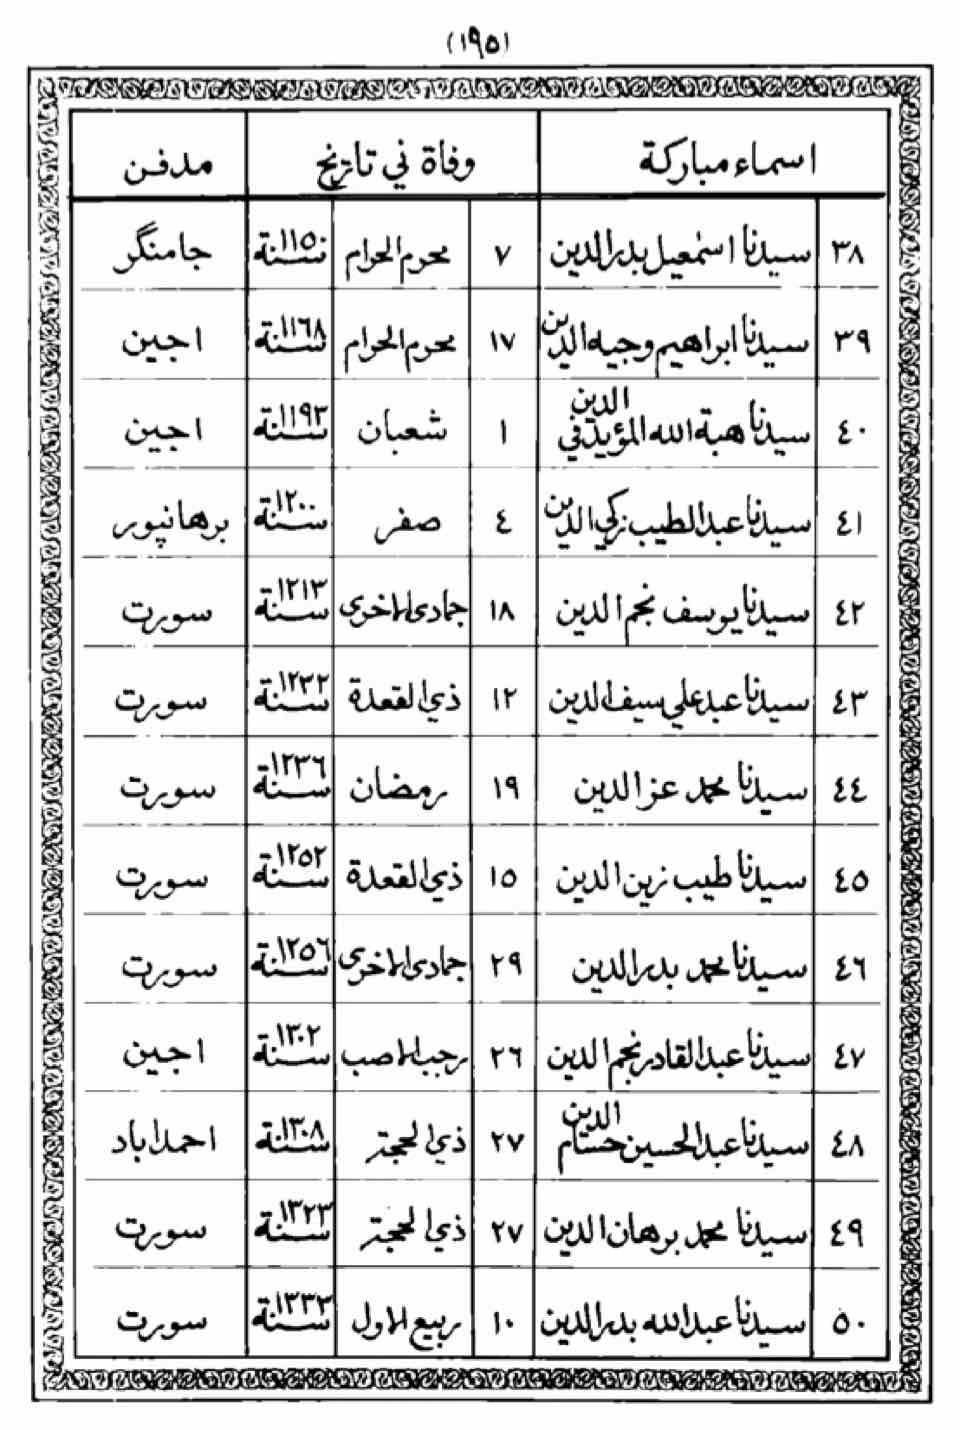 (١٩٥)
اسماء مباركة وفاة ني تاريخ مدفن
٣٨ سيدنا اسمٰعيل بدرالدين ٧ محرم الحرام سنة ١١٥٠ جامنگر
٣٩ سيدنا ابراهيم وجيه الدين ١٧ محرم الحرام سنة ١١٦٨ اجين
٤٠ سيدنا هبة الله المؤيد في الدين ١ شعبان سنة ١١٩٣ اجين
٤١ سيدنا عبد الطيب زكي الدين ٤ صفر سنة ١٢٠٠ برهانپور
٤٢ سيدنا يوسف نجم الدين ١٨ جمادى الاخرى سنة ١٢١٣ سورت
٤٣ سيدنا عبد علي سيف الدين ١٢ ذي القعدة سنة ١٢٣٢ سورت
٤٤ سيدنا محمد عز الدين ١٩ رمضان سنة ١٢٣٦ سورت
٤٥ سيدنا طيب زين الدين ١٥ ذي القعدة سنة ١٢٥٢ سورت
٤٦ سيدنا محمد بدرالدين ٢٩ جمادى الاخرى سنة ١٢٥٦ سورت
٤٧ سيدنا عبد القادر نجم الدين ٢٦ رجب الاصب سنة ١٣٠٢ اجين
٤٨ سيدنا عبد الحسين حسام الدين ٢٧ ذي الحجة سنة ١٣٠٨ احمداباد
٤٩ سيدنا محمد برهان الدين ٢٧ ذي الحجة سنة ١٣٢٣ سورت
٥٠ سيدنا عبدالله بدرالدين ١٠ ربيع الاول سنة ١٣٣٣ سورت